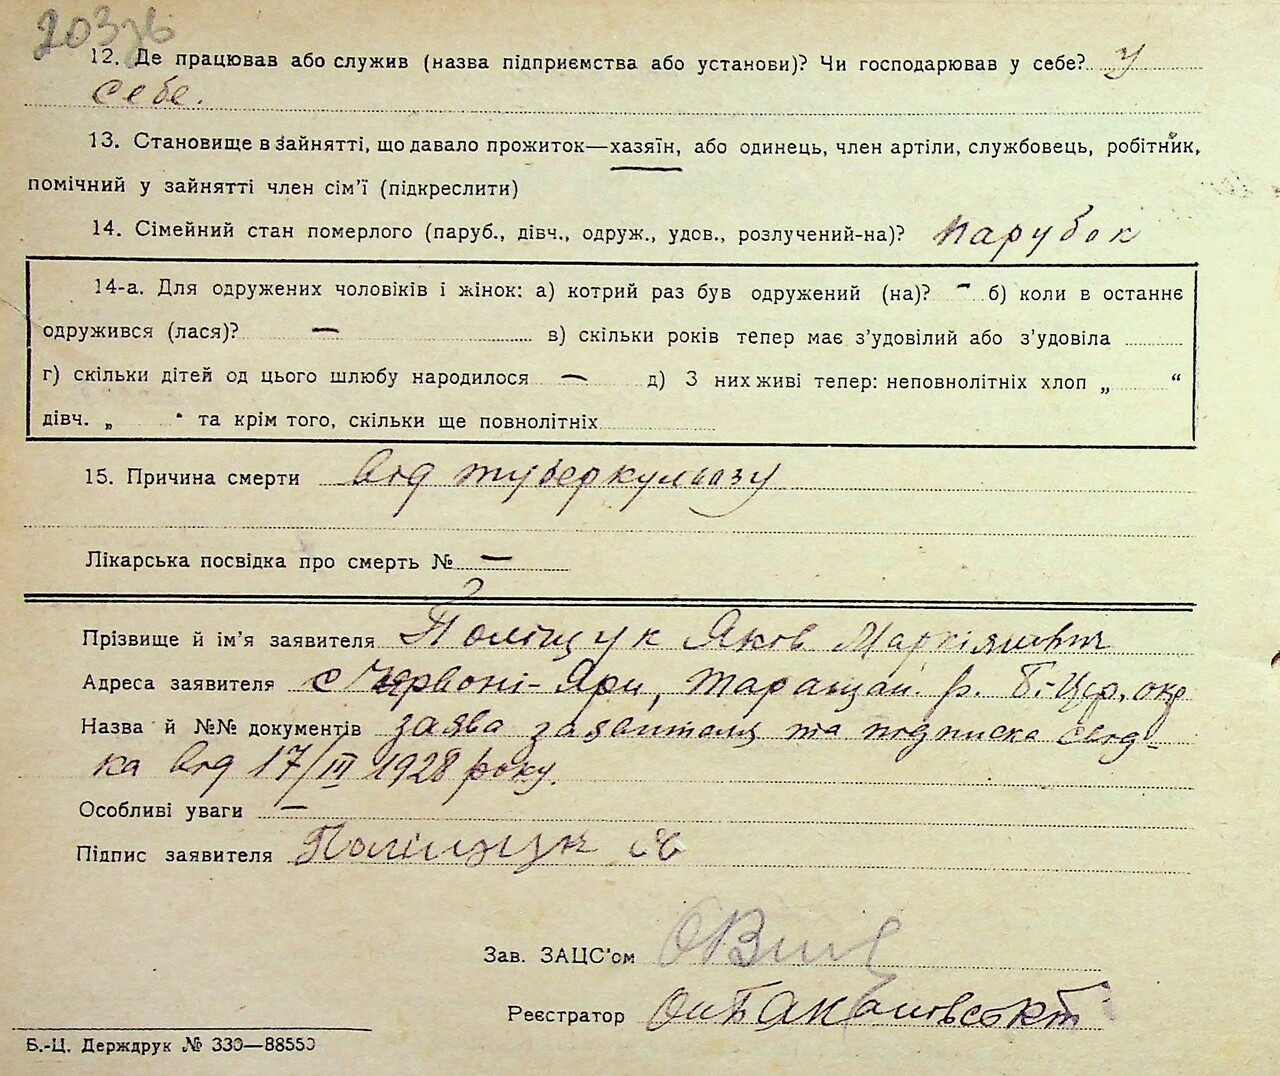 203зв
12. Де працював або служив (назва підприємства або установи)? Чи господарював у себе? у
себе.
13. Становище в зайнятті, що давало прожиток—хазяїн, або одинець, член артіли, службовець, робітник,
помічний у зайнятті член сім'ї (підкреслити)
14. Сімейний стан померлого (паруб., дівч., одруж., удов., розлучений-на)? парубок
14-а. Для одружених чоловіків і жінок: а) котрий раз був одружений (на)? – б) коли в останнє
одружився (лася)? — в) скільки років тепер має з'удовілий або з'удовіла
г) скільки дітей од цього шлюбу народилося — д) З них живі тепер: неповнолітніх хлоп „ “
дівч. „ “ та крім того, скільки ще повнолітніх
15. Причина смерти від туберкульозу
Лікарська посвідка про смерть № —
Прізвище й ім'я заявителя Поліщук Яків Маркіянович
Адреса заявителя с Червоні-Яри, Таращан. р. Б.-Цер. окр
Назва й №№ документів заява заявителя та підписка свід-
ка від 17/III 1928 року.
Особливі уваги —
Підпис заявителя Поліщук
Зав. ЗАЦС'ом
Реєстратор
Б.-Ц. Держдрук № 330—88550